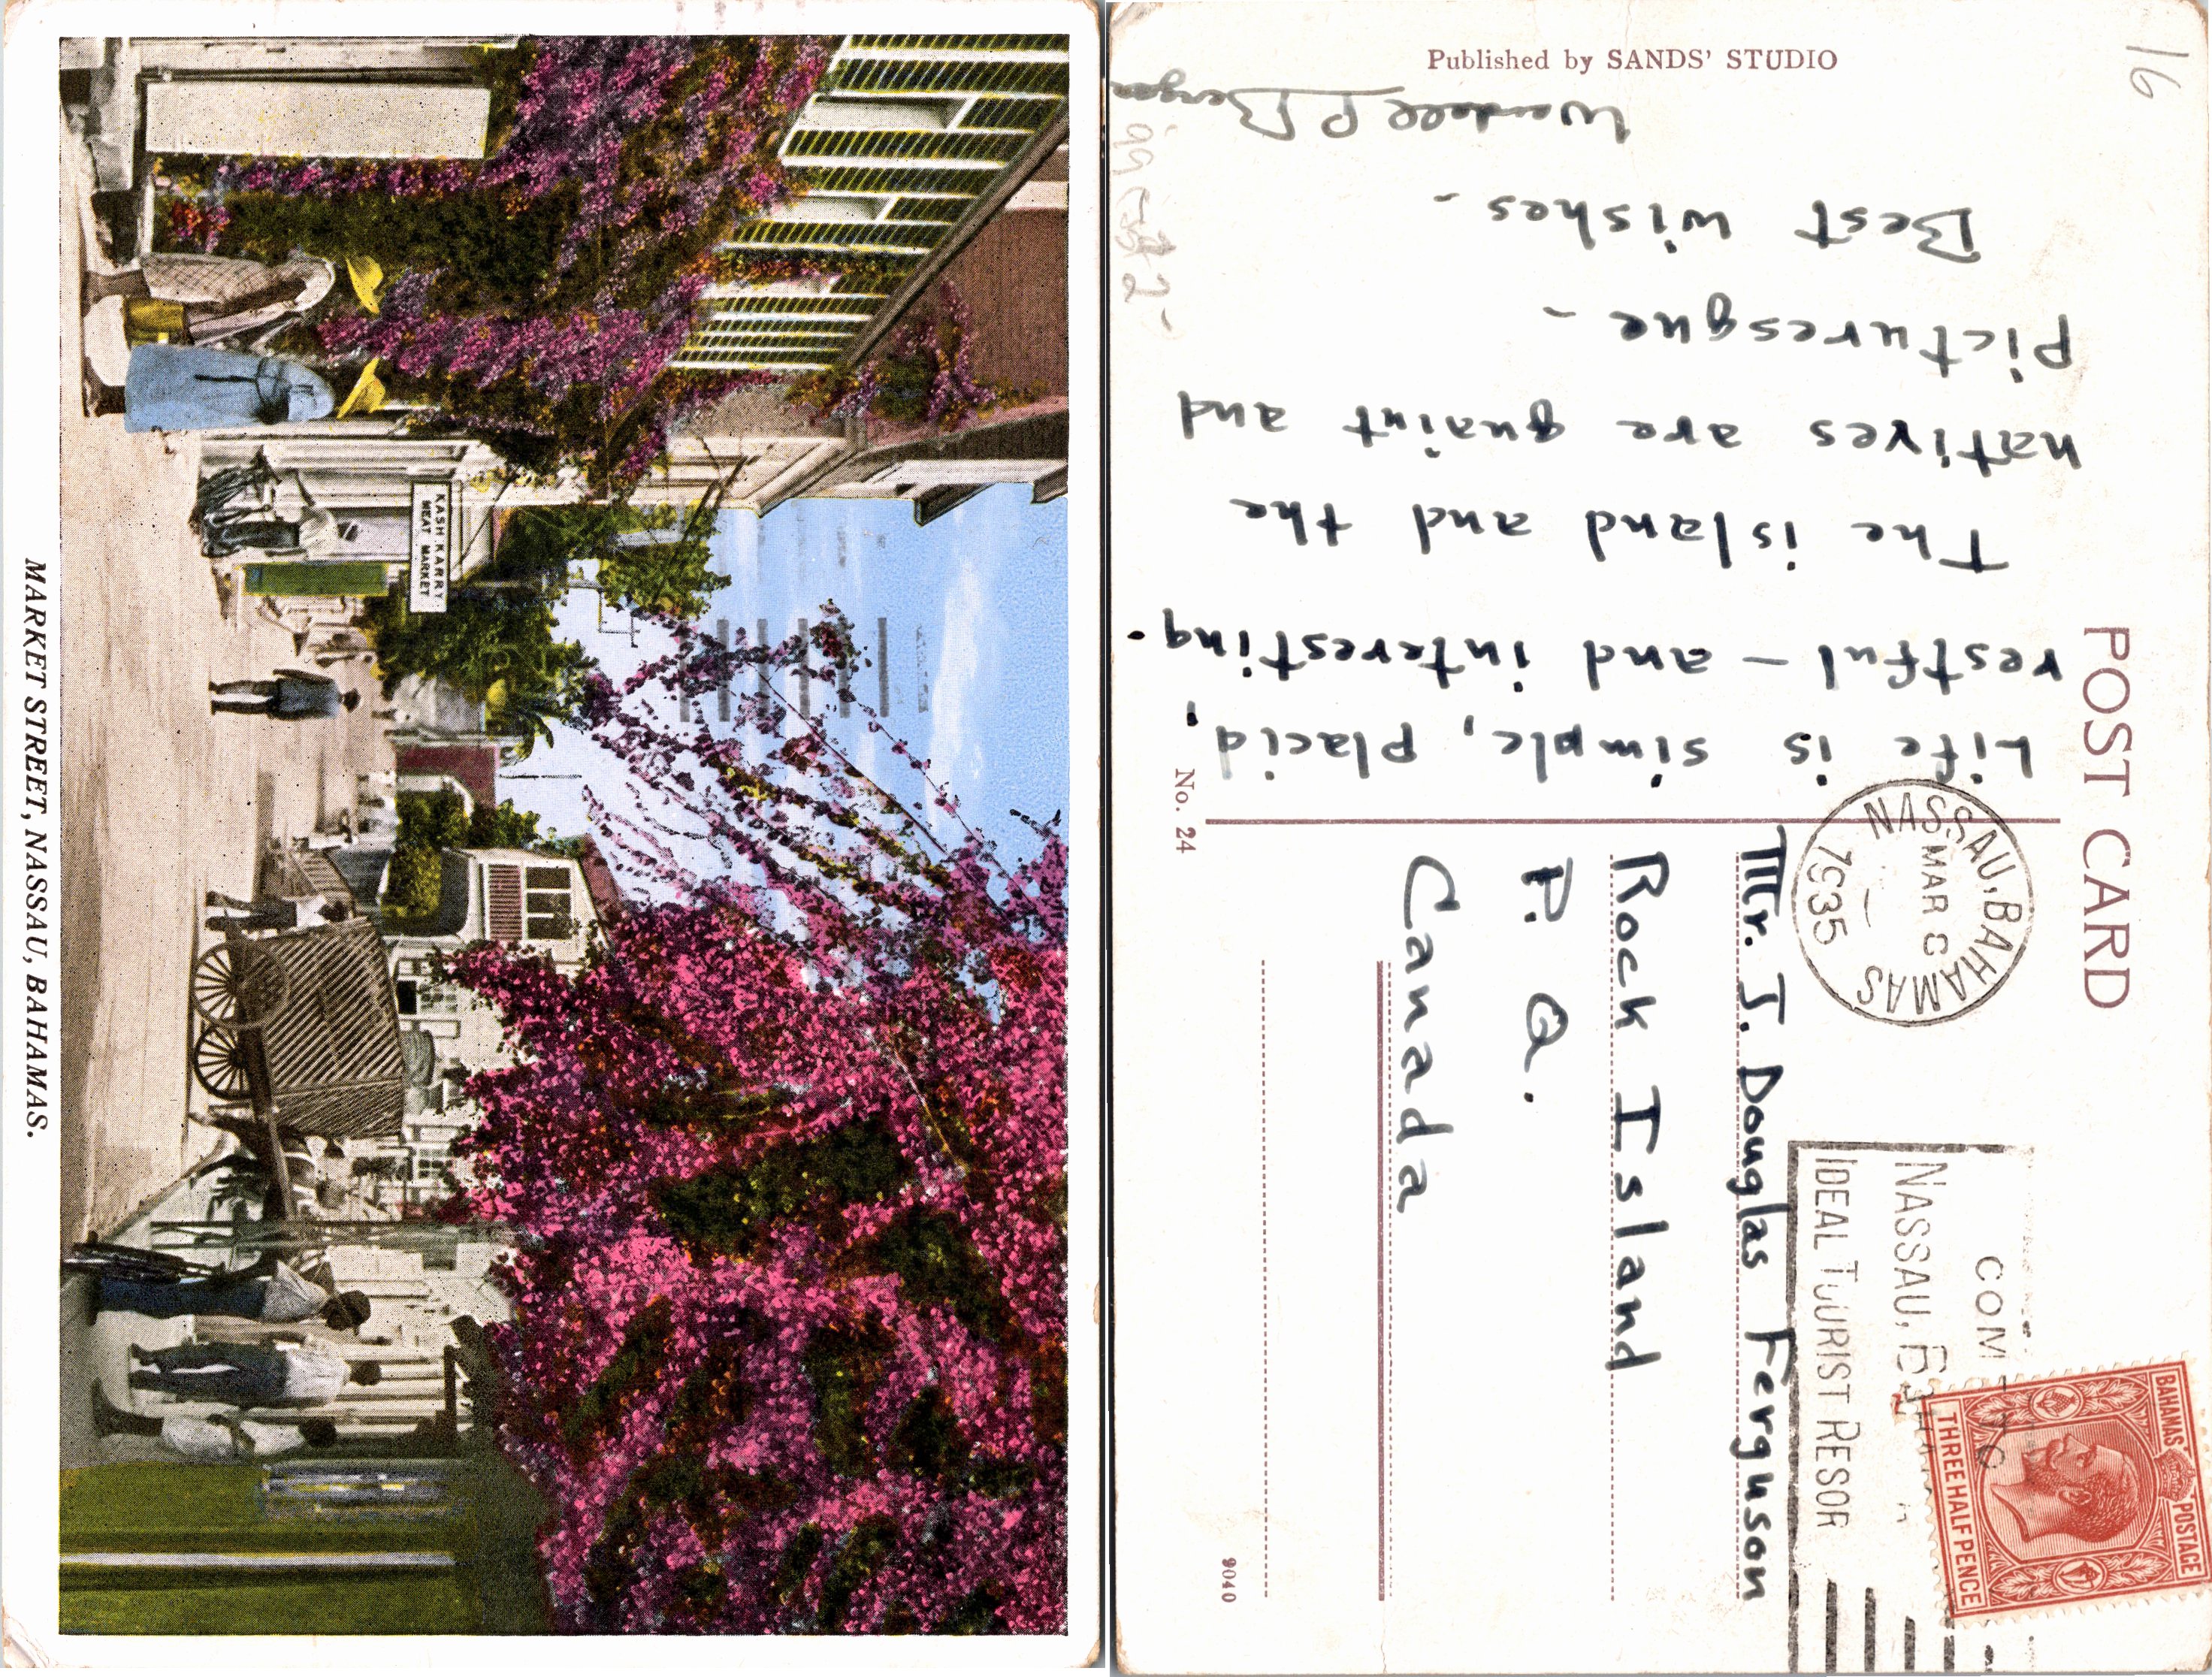 MARKET STREET, NASSAU, BAHAMAS.
KASH KARRY
MEAT MARKET
POST CARD
Published by SANDS' STUDIO
No. 24
9040
16
Life is simple, placid,
restful - and interesting.
The island and the
natives are quaint and
picturesque -
Best wishes -
Wendell P Berger
Mr. J. Douglas Ferguson
Rock Island
P. Q.
Canada
NASSAU, BAHAMAS
MAR 8
1935
COME TO
NASSAU, BAHAMAS
IDEAL TOURIST RESOR
BAHAMAS POSTAGE
THREE HALF PENCE